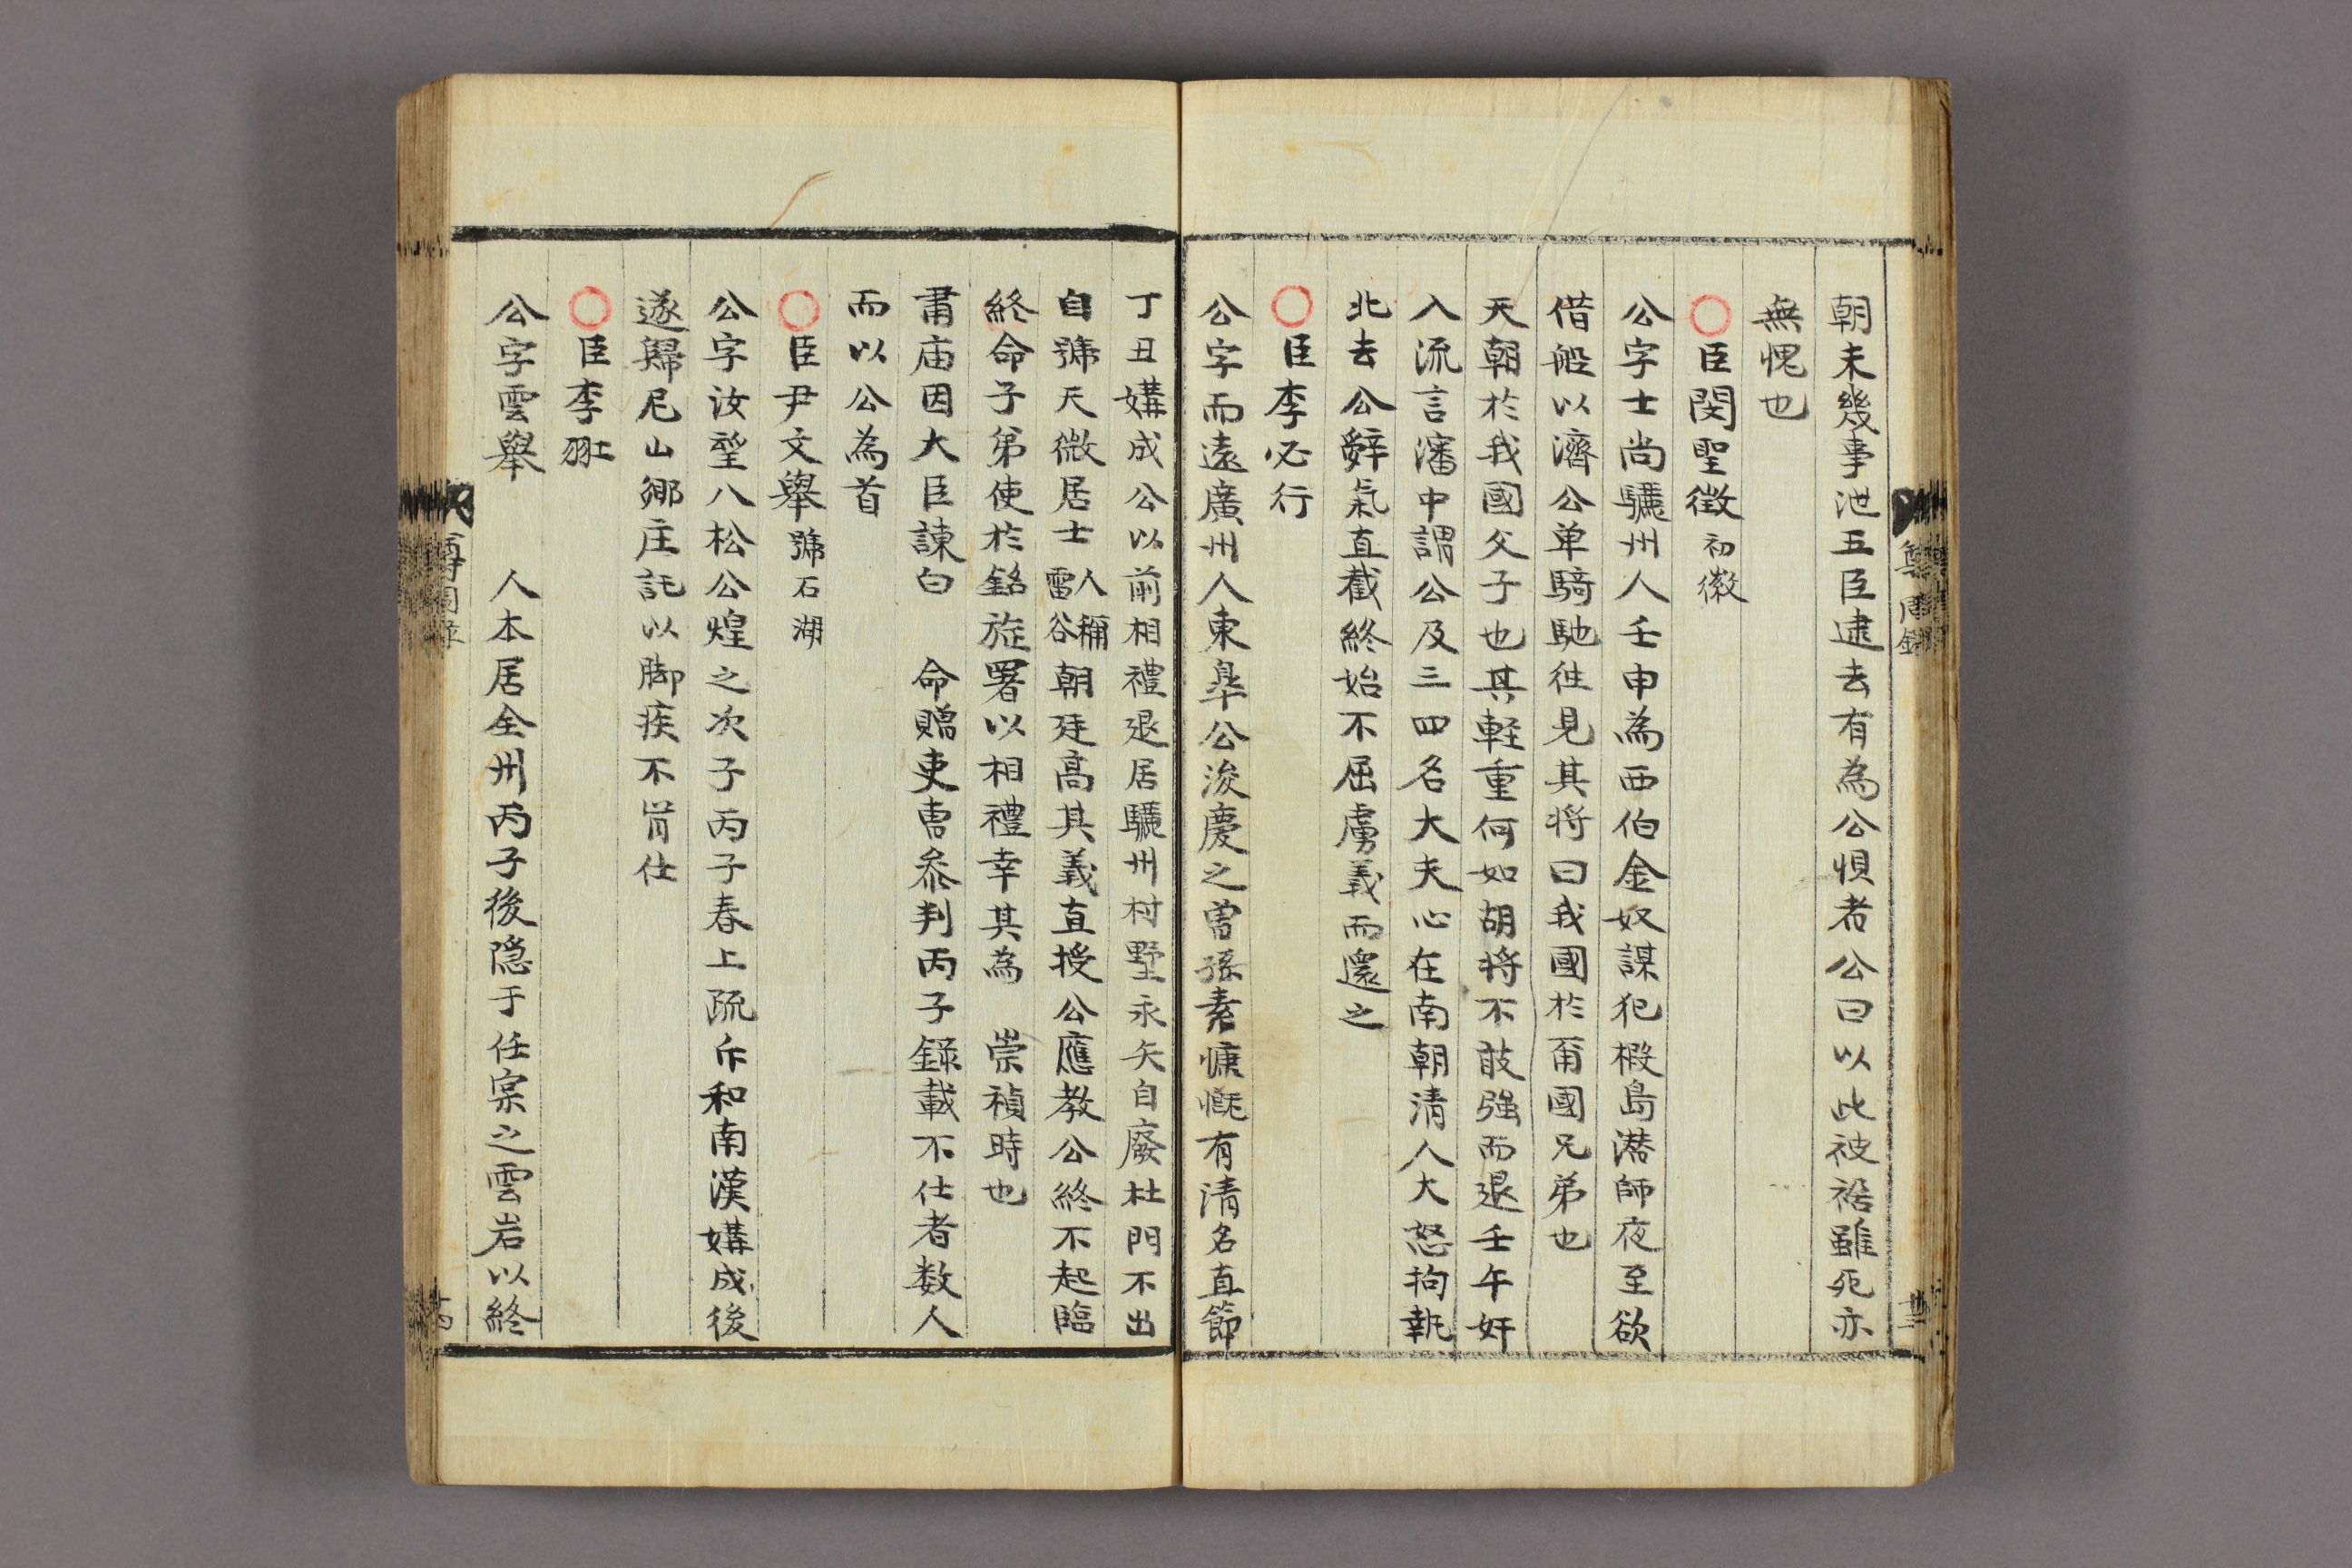 朝未幾事泄五臣逮去有為公惧者公曰以此被禍雖死亦
無愧也
○臣閔聖徵初徽
公字士尚驪州人壬申為西伯金奴謀犯椵島潛師夜至欲
借船以濟公单騎馳徃見其将曰我國於甭國兄弟也
天朝於我國父子也其軽重何如胡将不敢强而退壬午奸
入流言瀋中謂公及三四名大夫心在南朝清人大怒拘執
北去公辞氣直截終始不屈虜義而還之
○臣李必行
公字而遠廣州人東皐公浚慶之曽孫素慷慨有清名直節
丁丑媾成公以前相禮退居驪州村墅永矢自廢杜門不出
自號天微居士人稱雷谷朝廷高其義直授公應教公終不起臨
終命子弟使於銘旌署以相禮幸其為 崇禎時也
肅庙因大臣諫白 命贈吏曺叅判丙子録載不仕者数人
而以公為首
○臣尹文舉號石湖
公字汝望八松公煌之次子丙子春上疏斥和南漢媾成後
遂歸尼山鄉庄託以脚疾不肯仕
○臣李
公字雲舉 人本居全州丙子後隐于任宲之雲岩以終